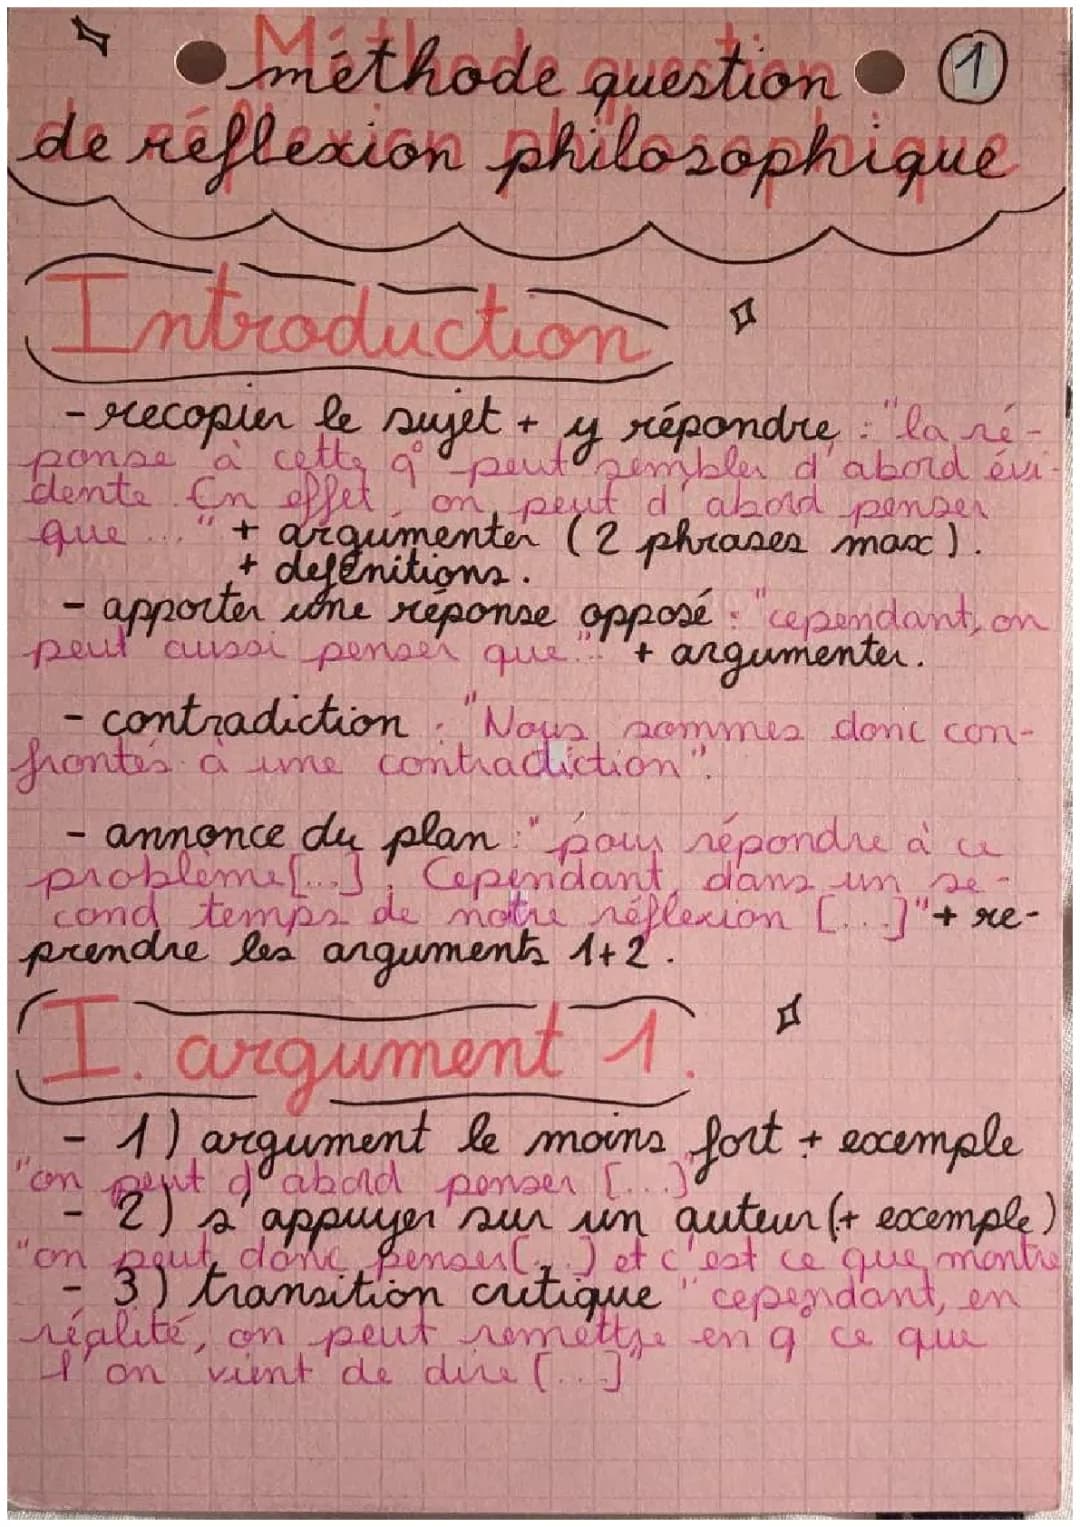 méthode question
1
de réflexion philosophique
Introduction
- recopier le sujet + y répondre : "la ré-
ponse à cette q° peut sembler d'abord évi-
dente. En effet, on peut d'abord penser
que ..." + argumenter (2 phrases max).
+ défénitions.
- apporter une réponse opposé : "cependant, on
peut aussi penser que..." + argumenter.
- contradiction : "Nous sommes donc con-
frontés à une contradiction".
- annonce du plan : "pour répondre à ce
problème [...]. Cependant, dans un se-
cond temps de notre réflexion [...]" + re-
prendre les arguments 1+2.
I. argument 1.
- 1) argument le moins fort + exemple
"on peut d'abord penser [...]"
- 2) s'appuyer sur un auteur (+ exemple)
"on peut donc penser [...] et c'est ce que montre
- 3) transition critique "cependant, en
réalité, on peut remettre en q° ce que
l'on vient de dire [...]"